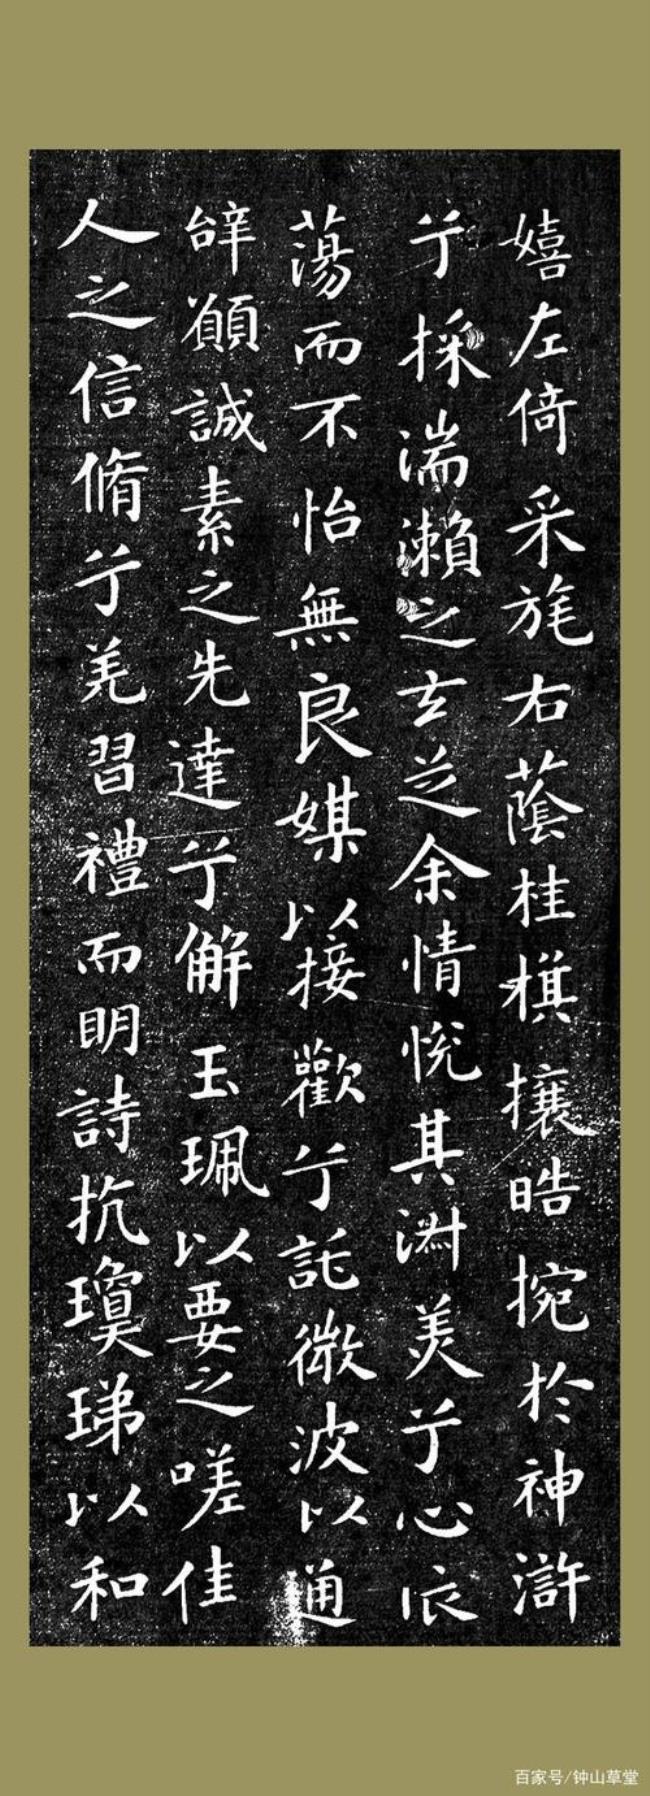 嬉左倚采旄右蔭桂棋攘晧捥於神滸
兮採湍瀨之玄芝余情悅其淵美兮心依
蕩而不怡無良媒以接歡兮託微波以通
辝願誠素之先達兮解玉珮以要之嗟佳
人之信脩兮羌習禮而明詩抗瓊珶以和
百家号/钟山草堂